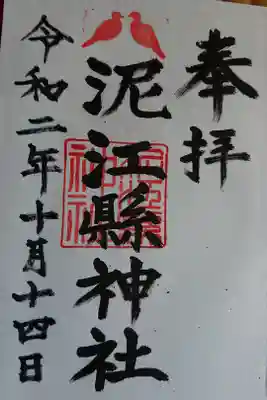 奉拝
泥江縣神社
令和二年十月十四日